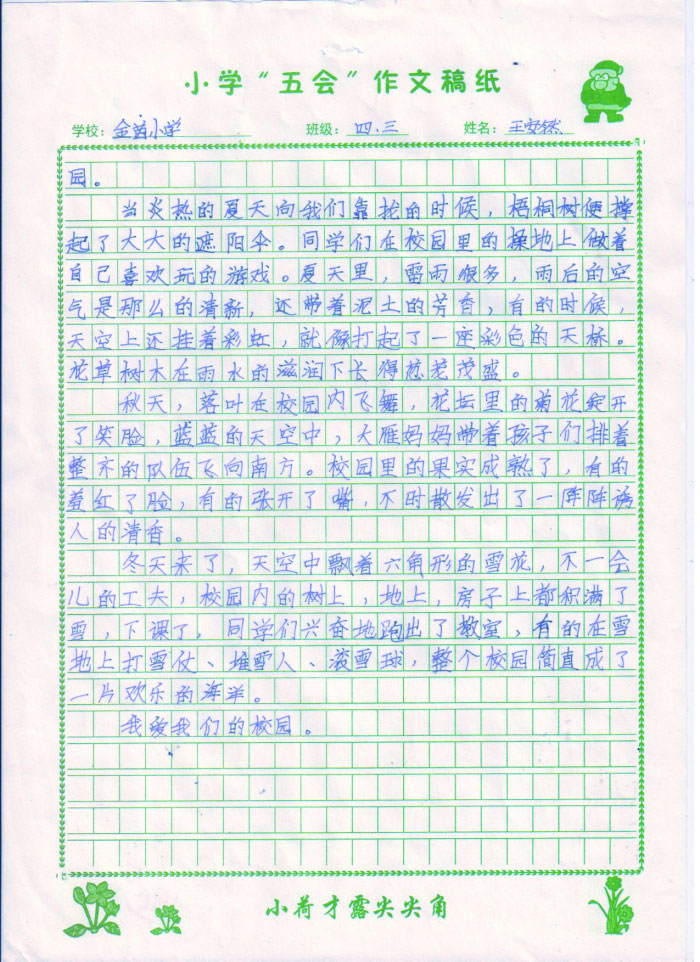 小学“五会”作文稿纸
学校：金茵小学 班级：四.三 姓名：王安然
园。
当炎热的夏天向我们靠拢的时候，梧桐树便撑
起了大大的遮阳伞。同学们在校园里的操地上做着
自己喜欢玩的游戏。夏天里，雷雨很多，雨后的空
气是那么的清新，还带着泥土的芳香，有的时候，
天空上还挂着彩虹，就像打起了一座彩色的天桥。
花草树木在雨水的滋润下长得葱茏茂盛。
秋天，落叶在校园内飞舞，花坛里的菊花绽开
了笑脸，蓝蓝的天空中，大雁妈妈带着孩子们排着
整齐的队伍飞向南方。校园里的果实成熟了，有的
羞红了脸，有的张开了嘴，不时散发出了一阵阵诱
人的清香。
冬天来了，天空中飘着六角形的雪花，不一会
儿的工夫，校园内的树上，地上，房子上都积满了
雪，下课了，同学们兴奋地跑出了教室，有的在雪
地上打雪仗、堆雪人、滚雪球，整个校园简直成了
一片欢乐的海洋。
我爱我们的校园。
小荷才露尖尖角